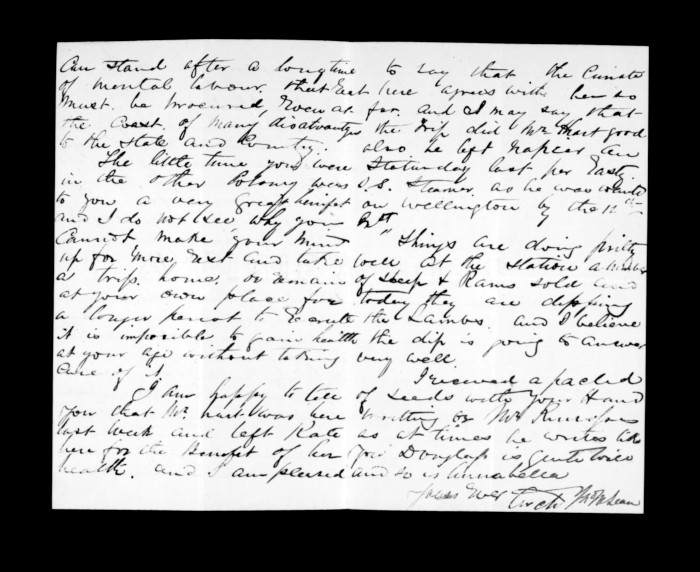 can stand after a long time
of mental labour, that rest
must be procured, even at
the Cost of many disadvantages
to the State and Country.
The little time you were
in the other Colony was
to you a very great benefit
and I do not see why you
cannot make your mind
up for more rest and take
a trip home, or remain
at your own place for
a longer period to recruit
it is impossible to gain health
at your age without taking
care of it.
I am happy to tell
you that Mr Hart was here
last week and left Kate
here for the benefit of her
health. and I am pleased
to say that the Climate
here agrees with her so
far. and I may say that
the trip did Mr Hart good
also he left Napier on
Saturday last per
S.S. Steamer, as he was
on Wellington by the 11th
Things are doing pretty
well at the Station a number
of sheep & Rams sold and
today they are dipping
the Lambs. and I believe
the dip is going to answer
very well.
I received a packed
of seeds with your Hand
writing on Mr
as at times he writes like
you Douglas is quite well
and so is Annabella
Yours Ever
Arch McLean